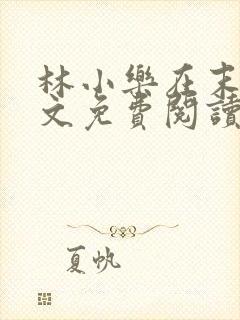 林小樂在末
文免費閱讀
夏帆